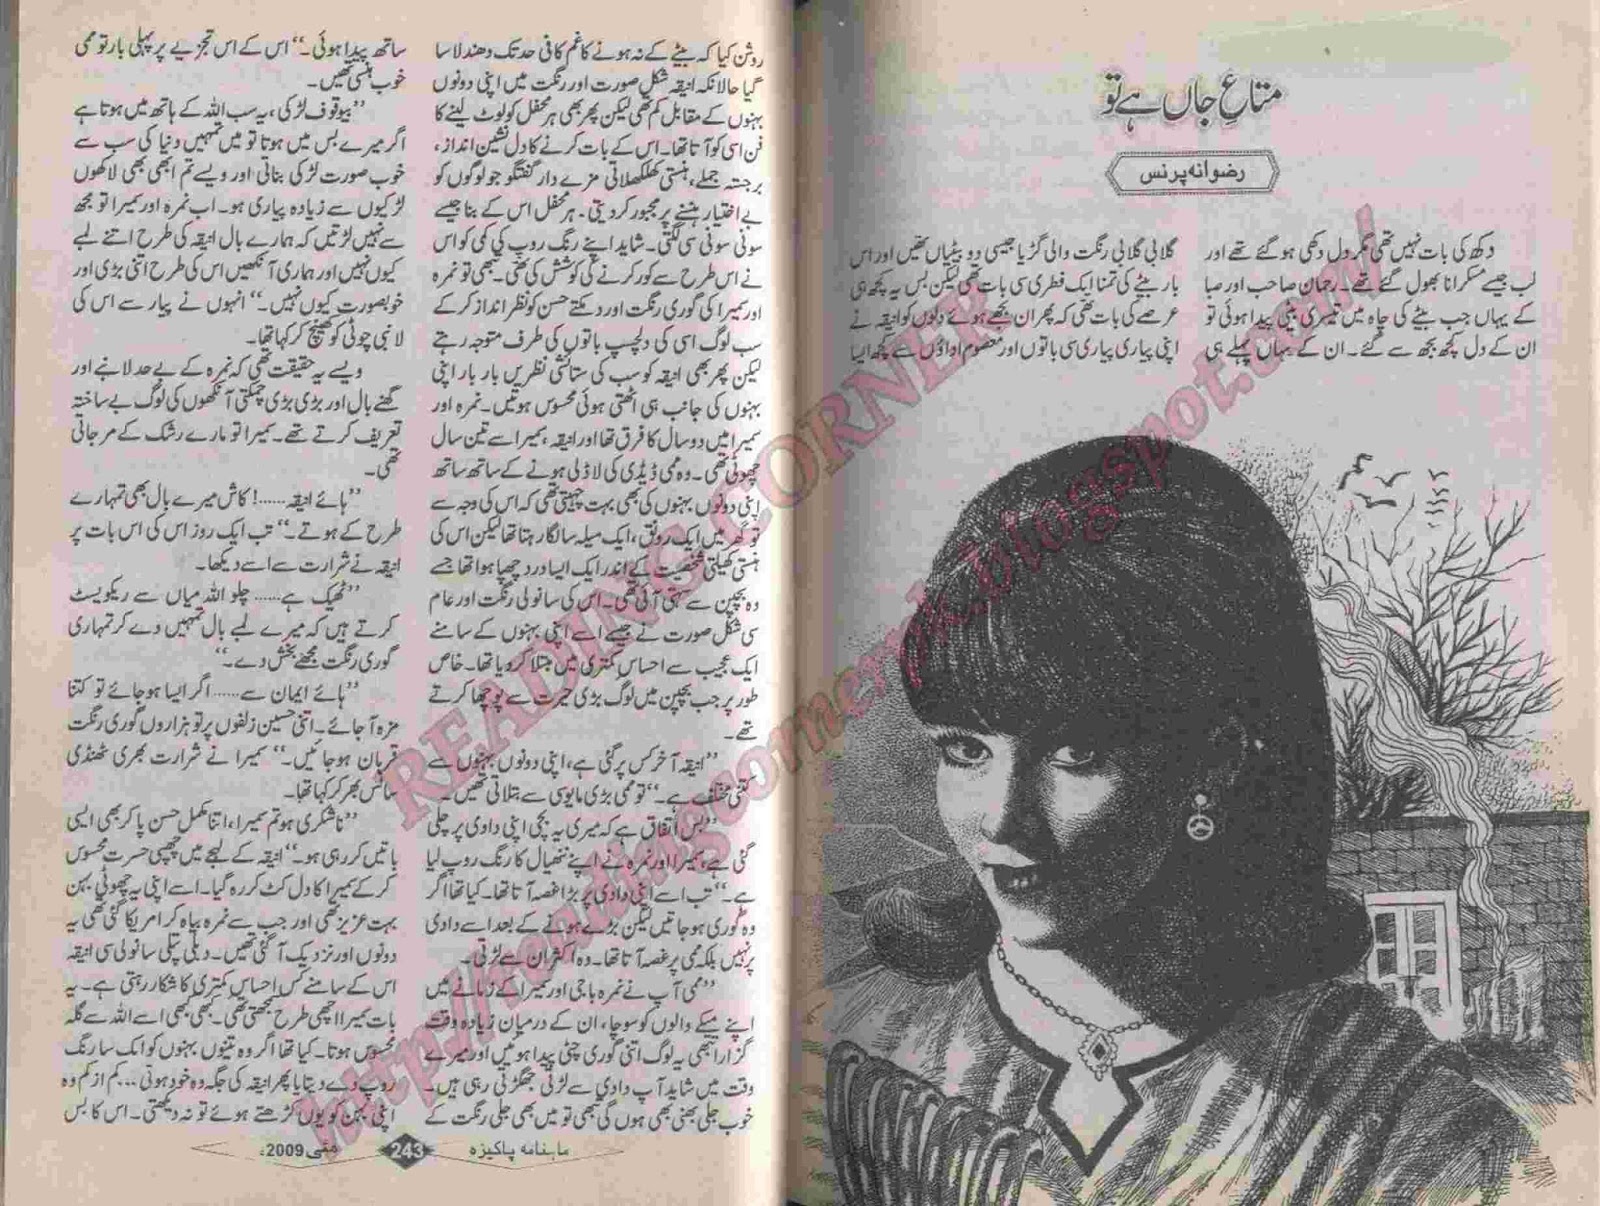 متاعِ جاں ہے تو
رضوانہ پرنس
دکھ کی بات نہیں تھی مگر دل دکھی ہو گئے تھے اور
لب جیسے مسکرانا بھول گئے تھے۔ رحمان صاحب اور صبا
کے یہاں جب بیٹے کی چاہ میں تیسری بیٹی پیدا ہوئی تو
ان کے دل کچھ بجھ سے گئے۔ ان کے یہاں پہلے ہی
گلابی گلابی رنگت والی گڑیا جیسی دو بیٹیاں تھیں اور اس
بار بیٹے کی تمنا ایک فطری سی بات تھی لیکن بس یہ کچھ ہی
عرصے کی بات تھی کہ پھر ان بجھے ہوئے دلوں کو انیقہ نے
اپنی پیاری پیاری سی باتوں اور معصوم اداؤں سے کچھ ایسا
روشن کیا کہ بیٹے کے نہ ہونے کا غم کافی حد تک دھندلا سا
گیا حالانکہ انیقہ شکل صورت اور رنگت میں اپنی دونوں
بہنوں کے مقابل کم تھی لیکن پھر بھی ہر محفل کو لوٹ لینے کا
فن اسی کو آتا تھا۔ اس کے بات کرنے کا دل نشین انداز،
برجستہ جملے، ہنستی کھلکھلاتی مزے دار گفتگو جو لوگوں کو
بے اختیار ہنسنے پر مجبور کر دیتی۔ ہر محفل اس کے بنا جیسے
سونی سونی سی لگتی۔ شاید اپنے رنگ روپ کی کمی کو اس
نے اس طرح سے کور کرنے کی کوشش کی تھی۔ تبھی تو نمرہ
اور سمیرا کی گوری رنگت اور دمکتے حسن کو نظر انداز کر کے
سب لوگ اسی کی دلچسپ باتوں کی طرف متوجہ رہتے
لیکن پھر بھی انیقہ کو سب کی ستائشی نظریں بار بار اپنی
بہنوں کی جانب ہی اٹھتی ہوئی محسوس ہوتیں۔ نمرہ اور
سمیرا میں دو سال کا فرق تھا اور انیقہ، سمیرا سے تین سال
چھوٹی تھی۔ وہ ممی ڈیڈی کی لاڈلی ہونے کے ساتھ ساتھ
اپنی دونوں بہنوں کی بھی بہت چہیتی تھی کہ اس کی وجہ سے
تو گھر میں ایک رونق، ایک میلہ سا لگا رہتا تھا لیکن اس کی
ہنستی کھیلتی شخصیت کے اندر ایک ایسا درد چھپا ہوا تھا جسے
وہ بچپن سے سہتی آئی تھی۔ اس کی سانولی رنگت اور عام
سی شکل صورت نے جیسے اسے اپنی بہنوں کے سامنے
ایک عجیب سے احساسِ کمتری میں مبتلا کر دیا تھا۔ خاص
طور پر جب بچپن میں لوگ بڑی حیرت سے پوچھا کرتے
تھے۔
”انیقہ آخر کس پر گئی ہے، اپنی دونوں بہنوں سے
کتنی مختلف ہے۔“ تو ممی بڑی مایوسی سے بتلاتی تھیں۔
”بس اتفاق ہے کہ میری یہ بچی اپنی دادی پر چلی
گئی ہے، سمیرا اور نمرہ نے اپنے ننھیال کا رنگ روپ لیا
ہے۔“ تب اسے اپنی دادی پر بڑا غصہ آتا تھا۔ کیا تھا اگر
وہ گوری ہو جاتیں لیکن بڑے ہونے کے بعد اسے دادی
پر نہیں بلکہ ممی پر غصہ آتا تھا۔ وہ اکثر ان سے لڑتی۔
”ممی آپ نے نمرہ باجی اور سمیرا کے زمانے میں
اپنے میکے والوں کو سوچا، ان کے درمیان زیادہ وقت
گزارا تبھی یہ لوگ اتنی گوری چٹی پیدا ہوئیں اور میرے
وقت میں شاید آپ دادی سے لڑتی جھگڑتی رہی ہیں۔
خوب جلی بھنی بھی ہوں گی تبھی تو میں بھی جلی رنگت کے
ساتھ پیدا ہوئی۔“ اس کے اس تجزیے پر پہلی بار تو ممی
خوب ہنسی تھیں۔
”بیوقوف لڑکی، یہ سب اللہ کے ہاتھ میں ہوتا ہے
اگر میرے بس میں ہوتا تو میں تمہیں دنیا کی سب سے
خوب صورت لڑکی بناتی اور ویسے تم ابھی بھی لاکھوں
لڑکیوں سے زیادہ پیاری ہو۔ اب نمرہ اور سمیرا تو مجھ
سے نہیں لڑتیں کہ ہمارے بال انیقہ کی طرح اتنے لمبے
کیوں نہیں اور ہماری آنکھیں اس کی طرح اتنی بڑی اور
خوبصورت کیوں نہیں۔“ انہوں نے پیار سے اس کی
لانبی چوٹی کو کھینچ کر کہا تھا۔
ویسے یہ حقیقت تھی کہ نمرہ کے بے حد لانبے اور
گھنے بال اور بڑی بڑی چمکتی آنکھوں کی لوگ بے ساختہ
تعریف کرتے تھے۔ سمیرا تو مارے رشک کے مر جاتی
تھی۔
”ہائے انیقہ......! کاش میرے بال بھی تمہارے
طرح کے ہوتے۔“ تب ایک روز اس کی اس بات پر
انیقہ نے شرارت سے اسے دیکھا۔
”ٹھیک ہے...... چلو اللہ میاں سے ریکویسٹ
کرتے ہیں کہ میرے لمبے بال تمہیں دے کر تمہاری
گوری رنگت مجھے بخش دے۔“
”ہائے ایمان سے...... اگر ایسا ہو جائے تو کتنا
مزہ آ جائے۔ اتنی حسین زلفوں پر تو ہزاروں گوری رنگت
قربان ہو جائیں۔“ سمیرا نے شرارت بھری ٹھنڈی
سانس بھر کر کہا تھا۔
”ناشکری ہو تم سمیرا، اتنا مکمل حسن پا کر بھی ایسی
باتیں کر رہی ہو۔“ انیقہ کے لہجے میں چھپی حسرت محسوس
کر کے سمیرا کا دل کٹ کر رہ گیا۔ اسے اپنی یہ چھوٹی بہن
بہت عزیز تھی اور جب سے نمرہ بیاہ کر امریکا گئی تھی یہ
دونوں اور نزدیک آ گئی تھیں۔ دبلی پتلی سانولی سی انیقہ
اس کے سامنے کس احساسِ کمتری کا شکار رہتی ہے۔ یہ
بات سمیرا اچھی طرح سمجھتی تھی۔ کبھی کبھی اسے اللہ سے گلہ
محسوس ہوتا۔ کیا تھا اگر وہ تینوں بہنوں کو ایک سا رنگ
روپ دے دیتا یا پھر انیقہ کی جگہ وہ خود ہوتی... کم از کم وہ
اپنی بہن کو یوں کڑھتے ہوئے تو نہ دیکھتی۔ اس کا بس
ماہنامہ پاکیزہ 243 مئی 2009ء
READING CORNER
http://readingcornerpk.blogspot.com/